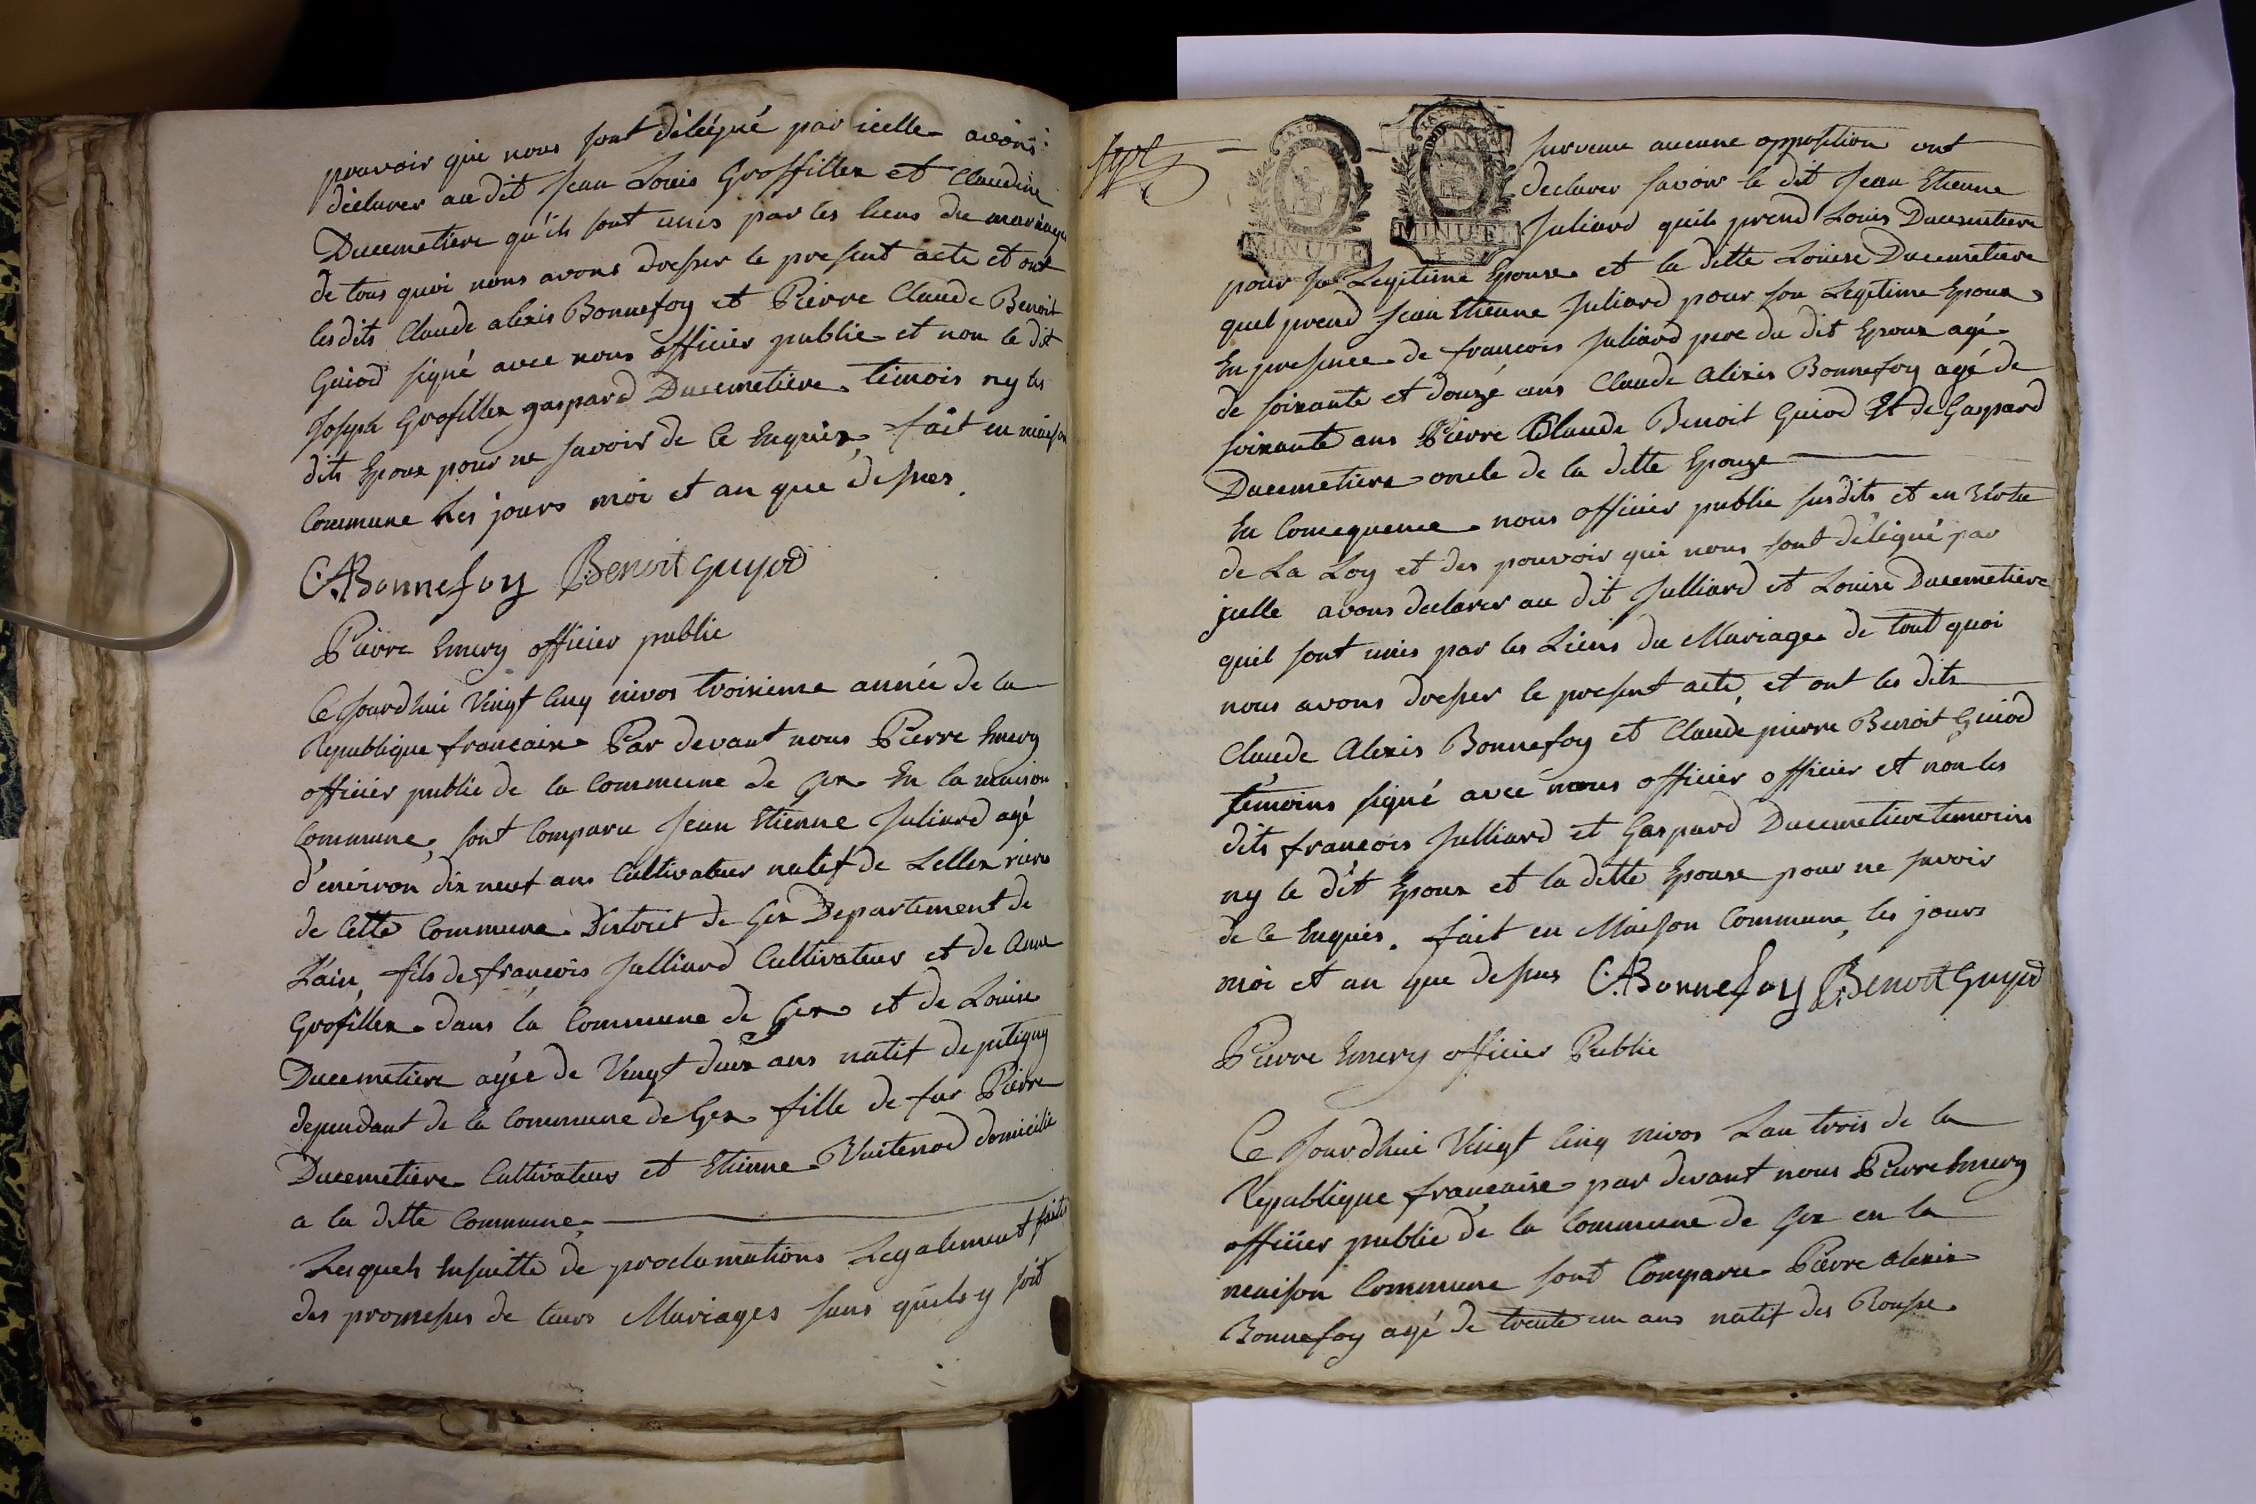 pouvoir qui nous sont délégué par icelle avons
déclarer au dit Jean Louis Grosfillex et Claudine
Ducemetiere qu'ils sont unis par les liens du mariage
de tous quoi nous avons dresser le present acte et ont
lesdits Claude alexis Bonnefoy et Pierre Claude Benoit
Guiod signé avec nous officier public et non le dit
Joseph Grosfillex gaspard Ducemetiere temois ny les
dits Epoux pour ne savoir de ce Enquis, fait en maison
Commune les jours moi et an que dessus.
CABonnefoy Benoit Guyod
Pierre Emery officier public
Ce Jourdhui Vingt Cinq nivos troisieme année de la
Republique francaise Par devant nous Pierre Emery
officier public de la Commune de Gex En la maison
Commune, sont Comparu Jean Etienne Juliard agé
d'environ dix neuf ans Cultivateur natif de Lellex riere
de Cette Commune District de Gex Departement de
Lain, fils de françois Julliard Cultivateur et de Anne
Grosfillex dans la Commune de Gex et de Louise
Ducemetiere agée de Vingt deux ans natif de pitigny
dependant de la Commune de Gex fille de fur Pierre
Ducemetiere Cultivateur et Etienne Vuitenod domicilié
a la ditte Commune
Lesquels Ensuitte de proclamations Legalement faite
des promesses de leurs Mariages sans quils y soit
sept
MINUTE
MINUTE
4 S
survenu aucune opposition ont
declarer savoir le dit Jean Etienne
Juliard quils prend Louis Ducemetiere
pour sa Legitime Epouse et la ditte Louise Ducemetiere
quel prend Jean Etienne Juliard pour son Legitime Epoux
En presence de francois Juliard pere du dit Epoux agé
de soixante et douze ans Claude Alexis Bonnefoy agé de
soixante ans Pierre Claude Benoit Guiod Et de Gaspard
Ducemetiere oncle de la ditte Epouze
En Consequence nous officier public susdits et en Vertu
de La Loy et des pouvoir qui nous sont délégué par
jcelle avons declarer au dit Julliard et Louise Ducemetiere
quil sont unis par les Liens du Mariage de tout quoi
nous avons dresser le present acte, et ont les dits
Claude Alexis Bonnefoy et Claude pierre Benoit Guiod
témoins signé avec nous officier officier et non les
dits francois Julliard et Gaspard Ducemetiere temoins
ny le dit Epoux et la ditte Epouse pour ne savoir
de ce Enquis. fait en Maison Commune, les jours
moi et an que dessus CABonnefoy Benoit Guyod
Pierre Emery officier Public
Ce Jourdhui Vingt Cinq nivos Lan trois de la
Republique francaise par devant nous Pierre Emery
officier public de la Commune de Gex en la
maison Commune sont Comparu Pierre alexis
Bonnefoy agé de trente un ans natif des Rousse